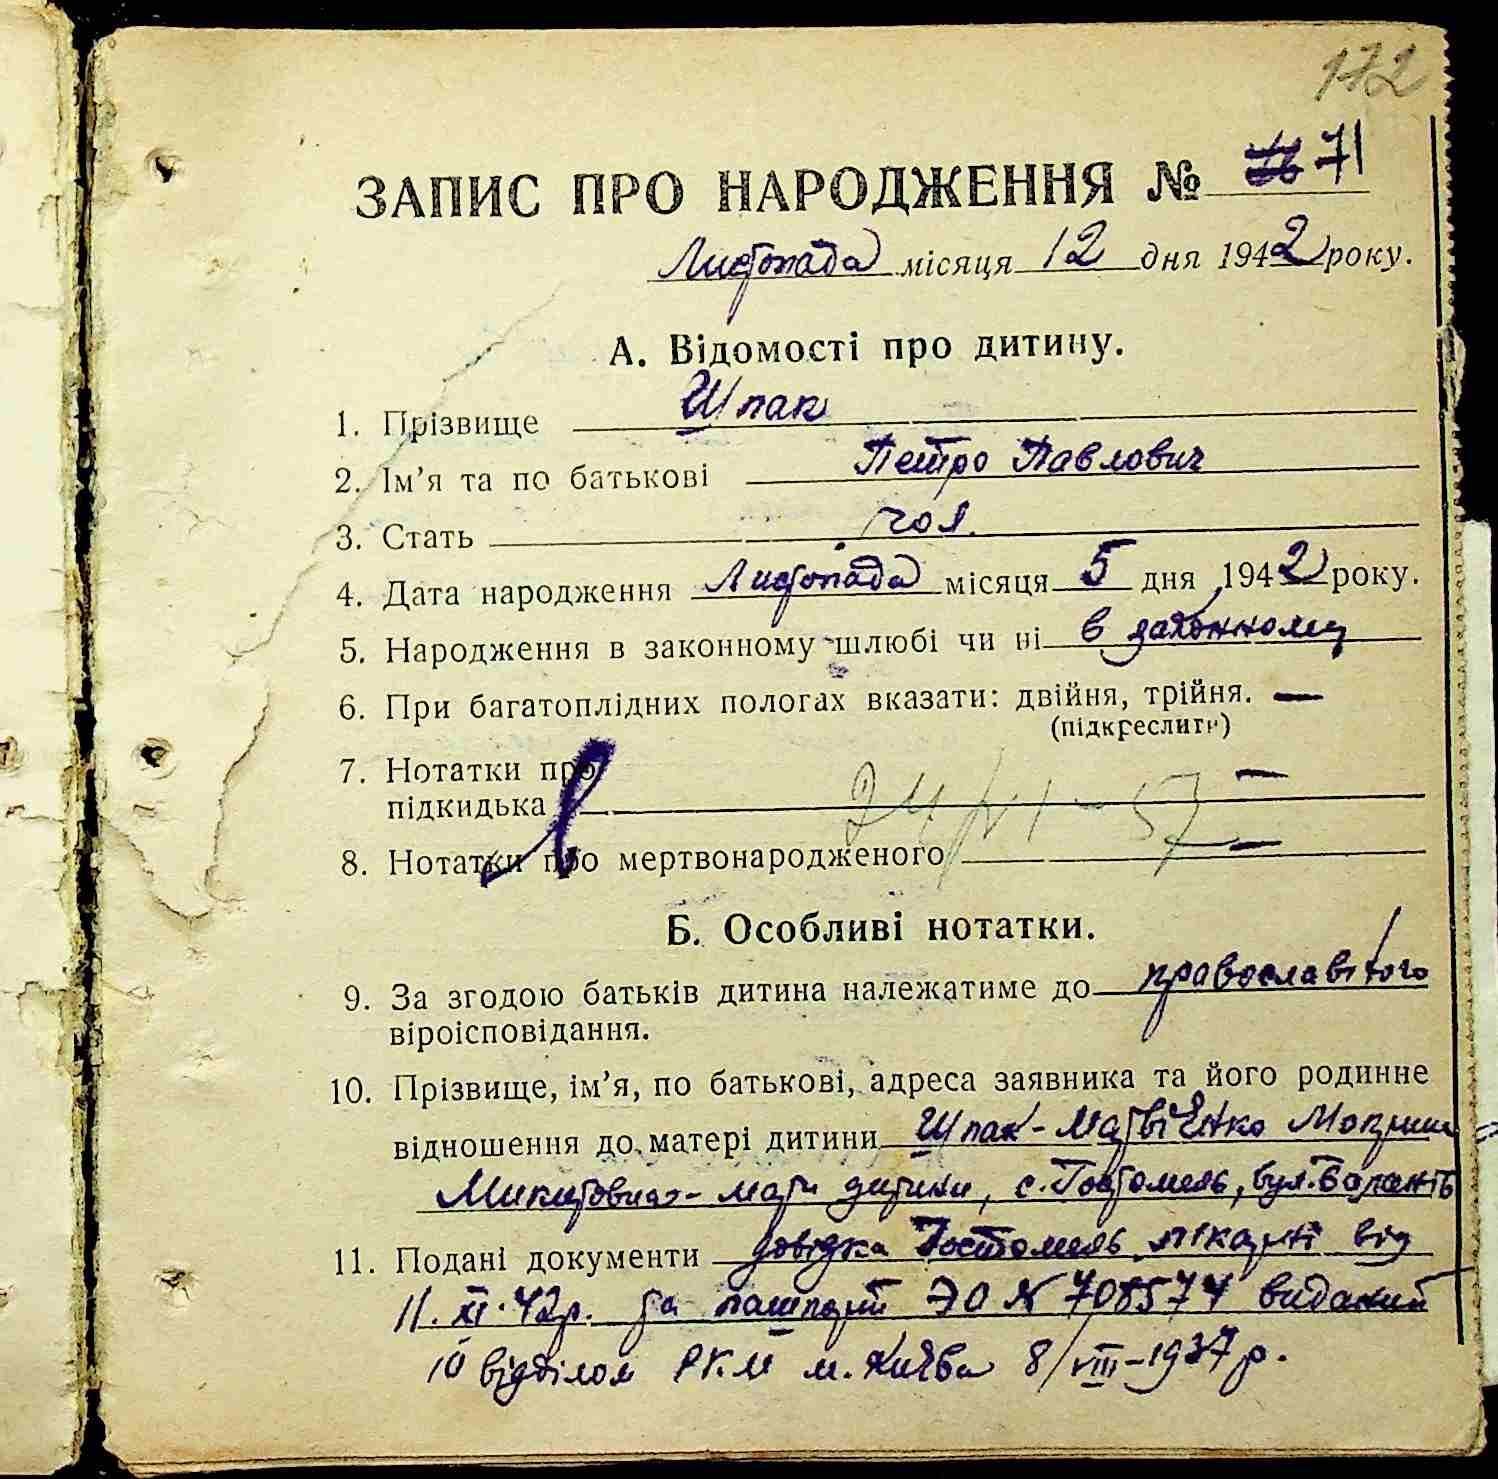 172
ЗАПИС ПРО НАРОДЖЕННЯ № 71
Листопада місяця 12 дня 1942 року.
А. Відомості про дитину.
1. Прізвище Шпак
2. Ім'я та по батькові Петро Павлович
3. Стать чол.
4. Дата народження Листопада місяця 5 дня 1942 року.
5. Народження в законному шлюбі чи ні в законному
6. При багатоплідних пологах вказати: двійня, трійня. —
(підкреслити)
7. Нотатки про
підкидька —
24/VI-57
8. Нотатки про мертвонародженого —
Б. Особливі нотатки.
9. За згодою батьків дитина належатиме до православного
віроісповідання.
10. Прізвище, ім'я, по батькові, адреса заявника та його родинне
відношення до матері дитини Шпак-Матвієнко
Микитовна - мати дитини, с. Гостомель, вул.
11. Подані документи довідка Гостомель лікарні від
11.XI.42р. та пашпорт ЭО № 708574 виданий
10 відділом РКМ м. Київа 8/VIII-1937р.